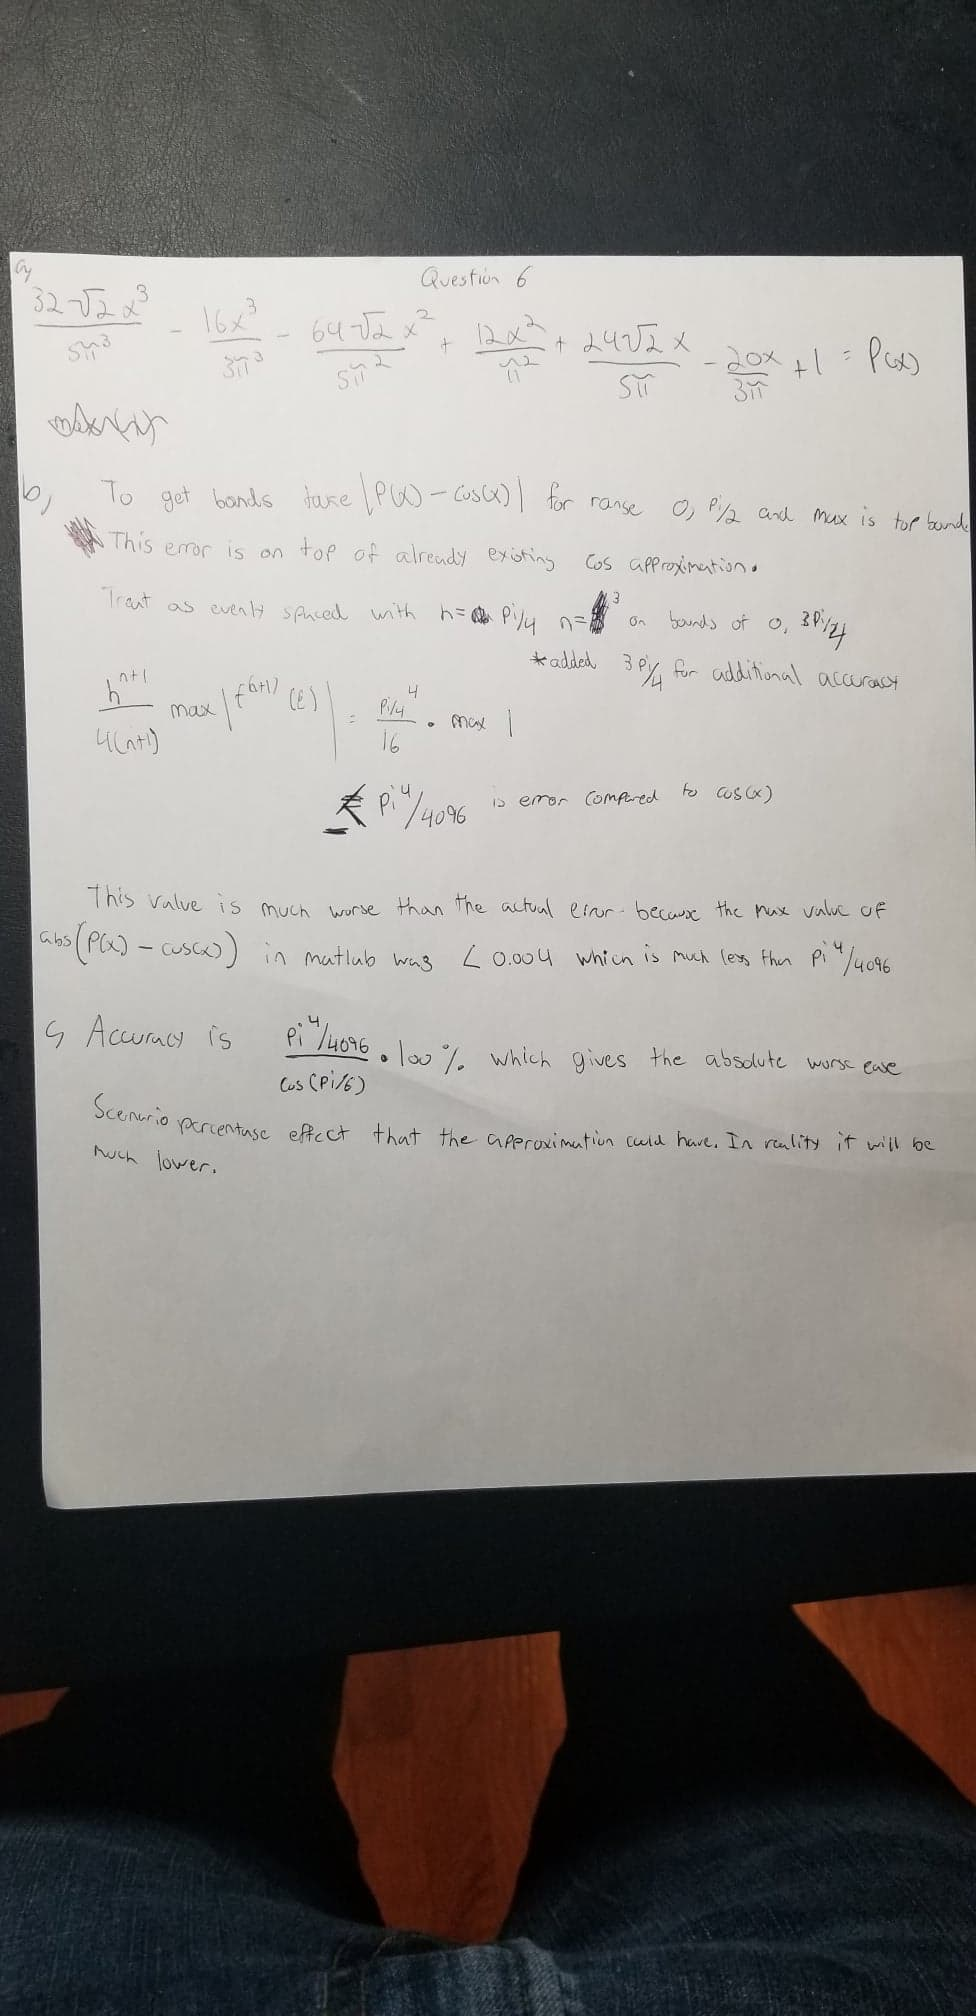 Question 6
a,
32√2 x³/5π³ - 16x³/3π³ - 64√2 x²/5π² + 12x²/π² + 24√2 x/5π - 20x/3π + 1 = P(x)
b, To get bands take |P(x) - cos(x)| for range 0, Pi/2 and max is top bound
This error is on top of already existing cos approximation.
Treat as evenly spaced with h= Pi/4 n= 3 on bounds of 0, 3Pi/4
*added 3Pi/4 for additional accuracy
h^(n+1)/4(n+1) max |f^(n+1)(ε)| = Pi/4^4/16 • max |
≤ Pi^4/4096 is error compared to cos(x)
This value is much worse than the actual error because the max value of
abs(P(x) - cos(x)) in matlab was < 0.004 which is much less than Pi^4/4096
c, Accuracy is Pi^4/4096/cos(Pi/6) • 100% which gives the absolute worse case
Scenario percentage effect that the approximation could have. In reality it will be
much lower.